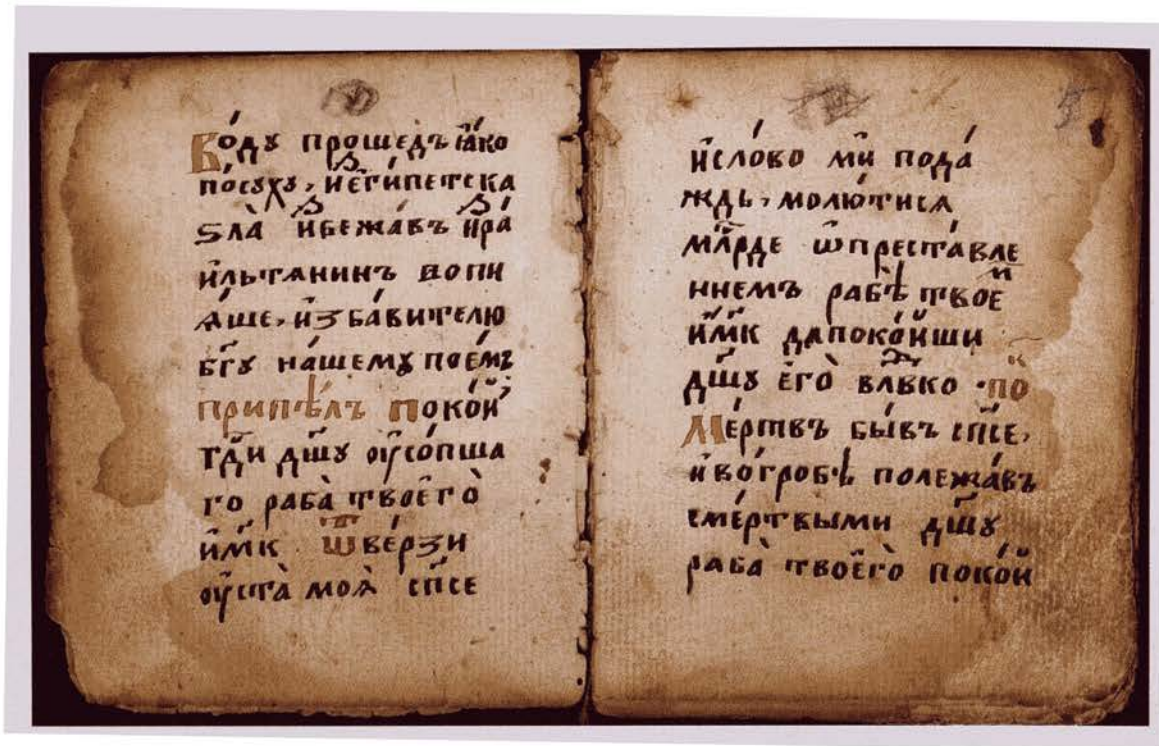 Во́ду проше́дъ ꙗ҆́ко
по́сꙋхꙋ, и҆є҆ги́петска
ѕла̀ и҆збежа́въ и҆зра́
и҆льтѧнинъ вопи
ѧ҆́ше, и҆зба́вителю
бг҃ꙋ на́шемꙋ пое́мъ
припѣ́лъ поко́й
гд҃и дш҃ꙋ ѹ҆со́пша
го раба̀ твоегѡ̀
и҆м҃к ѿве́рзи
ѹ҆ста̀ моѧ̀ сп҃се
и҆сло́во мѝ пода́
ждь, молю́тисѧ
мл҃рде ѡ҆преста́вле
ннемъ рабѣ̀ твое́м
и҆м҃к дапоко́иши
дш҃ꙋ є҆го̀ влⷣвко по
Ме́ртвъ бы́въ сп҃се,
и҆во́гробѣ полежа́въ
сме́ртвыми дш҃ꙋ
раба̀ твоего̀ поко́й